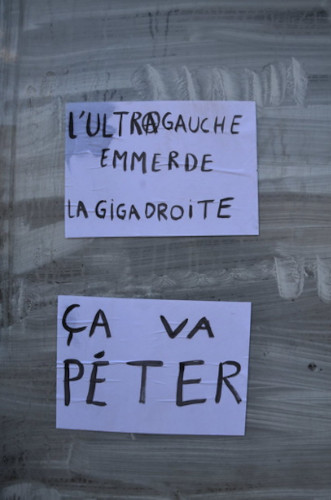 L'ULTRAGAUCHE
EMMERDE
LA GIGADROITE
ÇA VA
PÉTER